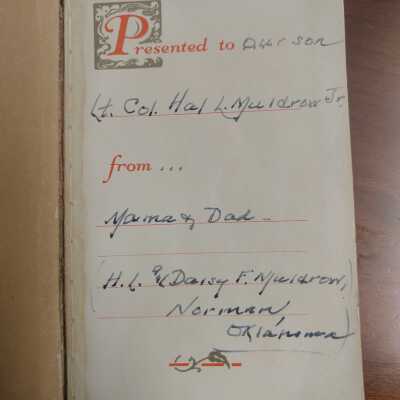 Presented to Our son
Lt. Col. Hal L. Muldrow Jr.
from ...
Mama & Dad -
(H. L. & Daisy F. Muldrow,
Norman,
Oklahoma)